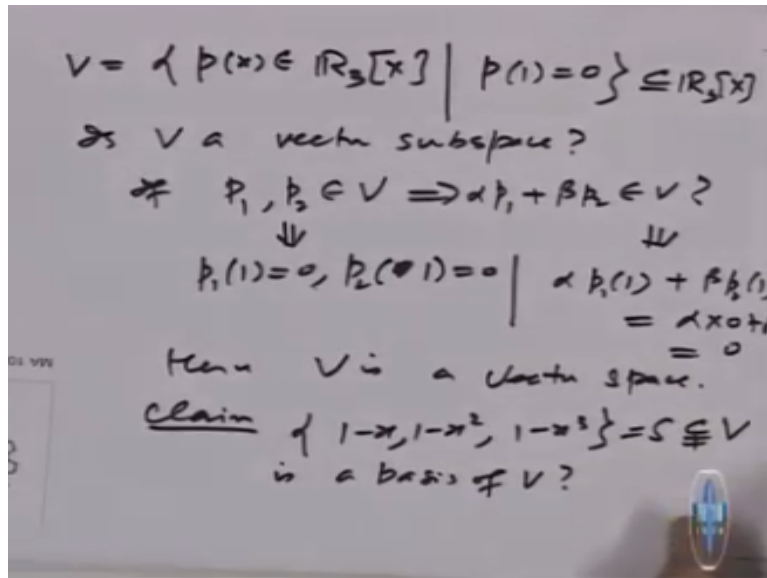 V = { p(x) ∈ ℝ₃[x] | p(1) = 0 } ⊆ ℝ₃[x]
Is V a vector subspace?
If p₁, p₂ ∈ V ⟹ αp₁ + βp₂ ∈ V ?
⇓ ⇓
p₁(1) = 0, p₂(1) = 0 | α p₁(1) + β p₂(1)
= α×0+
= 0
Hence V is a vector space.
Claim { 1-x, 1-x², 1-x³ } = S ⊊ V
is a basis of V ?
MA 10